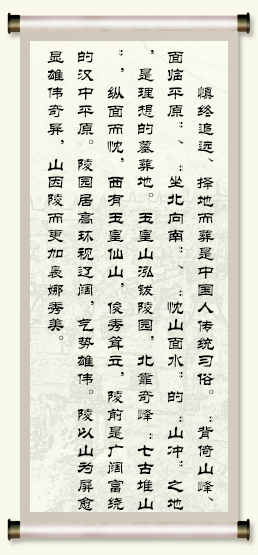 慎终追远、择地而葬是中国人传统习俗。:背倚山峰、
面临平原:、:坐北向南:、:忱山面水:的:山冲:之地
,是理想的墓葬地。玉皇山泓钹陵园,北靠奇峰:七古堆山
:,纵面而忱,西有玉皇仙山,俊秀耸立,陵前是广阔富绕
的汉中平原。陵园居高环视辽阔,气势雄伟。陵以山为屏愈
显雄伟奇异,山因陵而更加袅娜秀美。